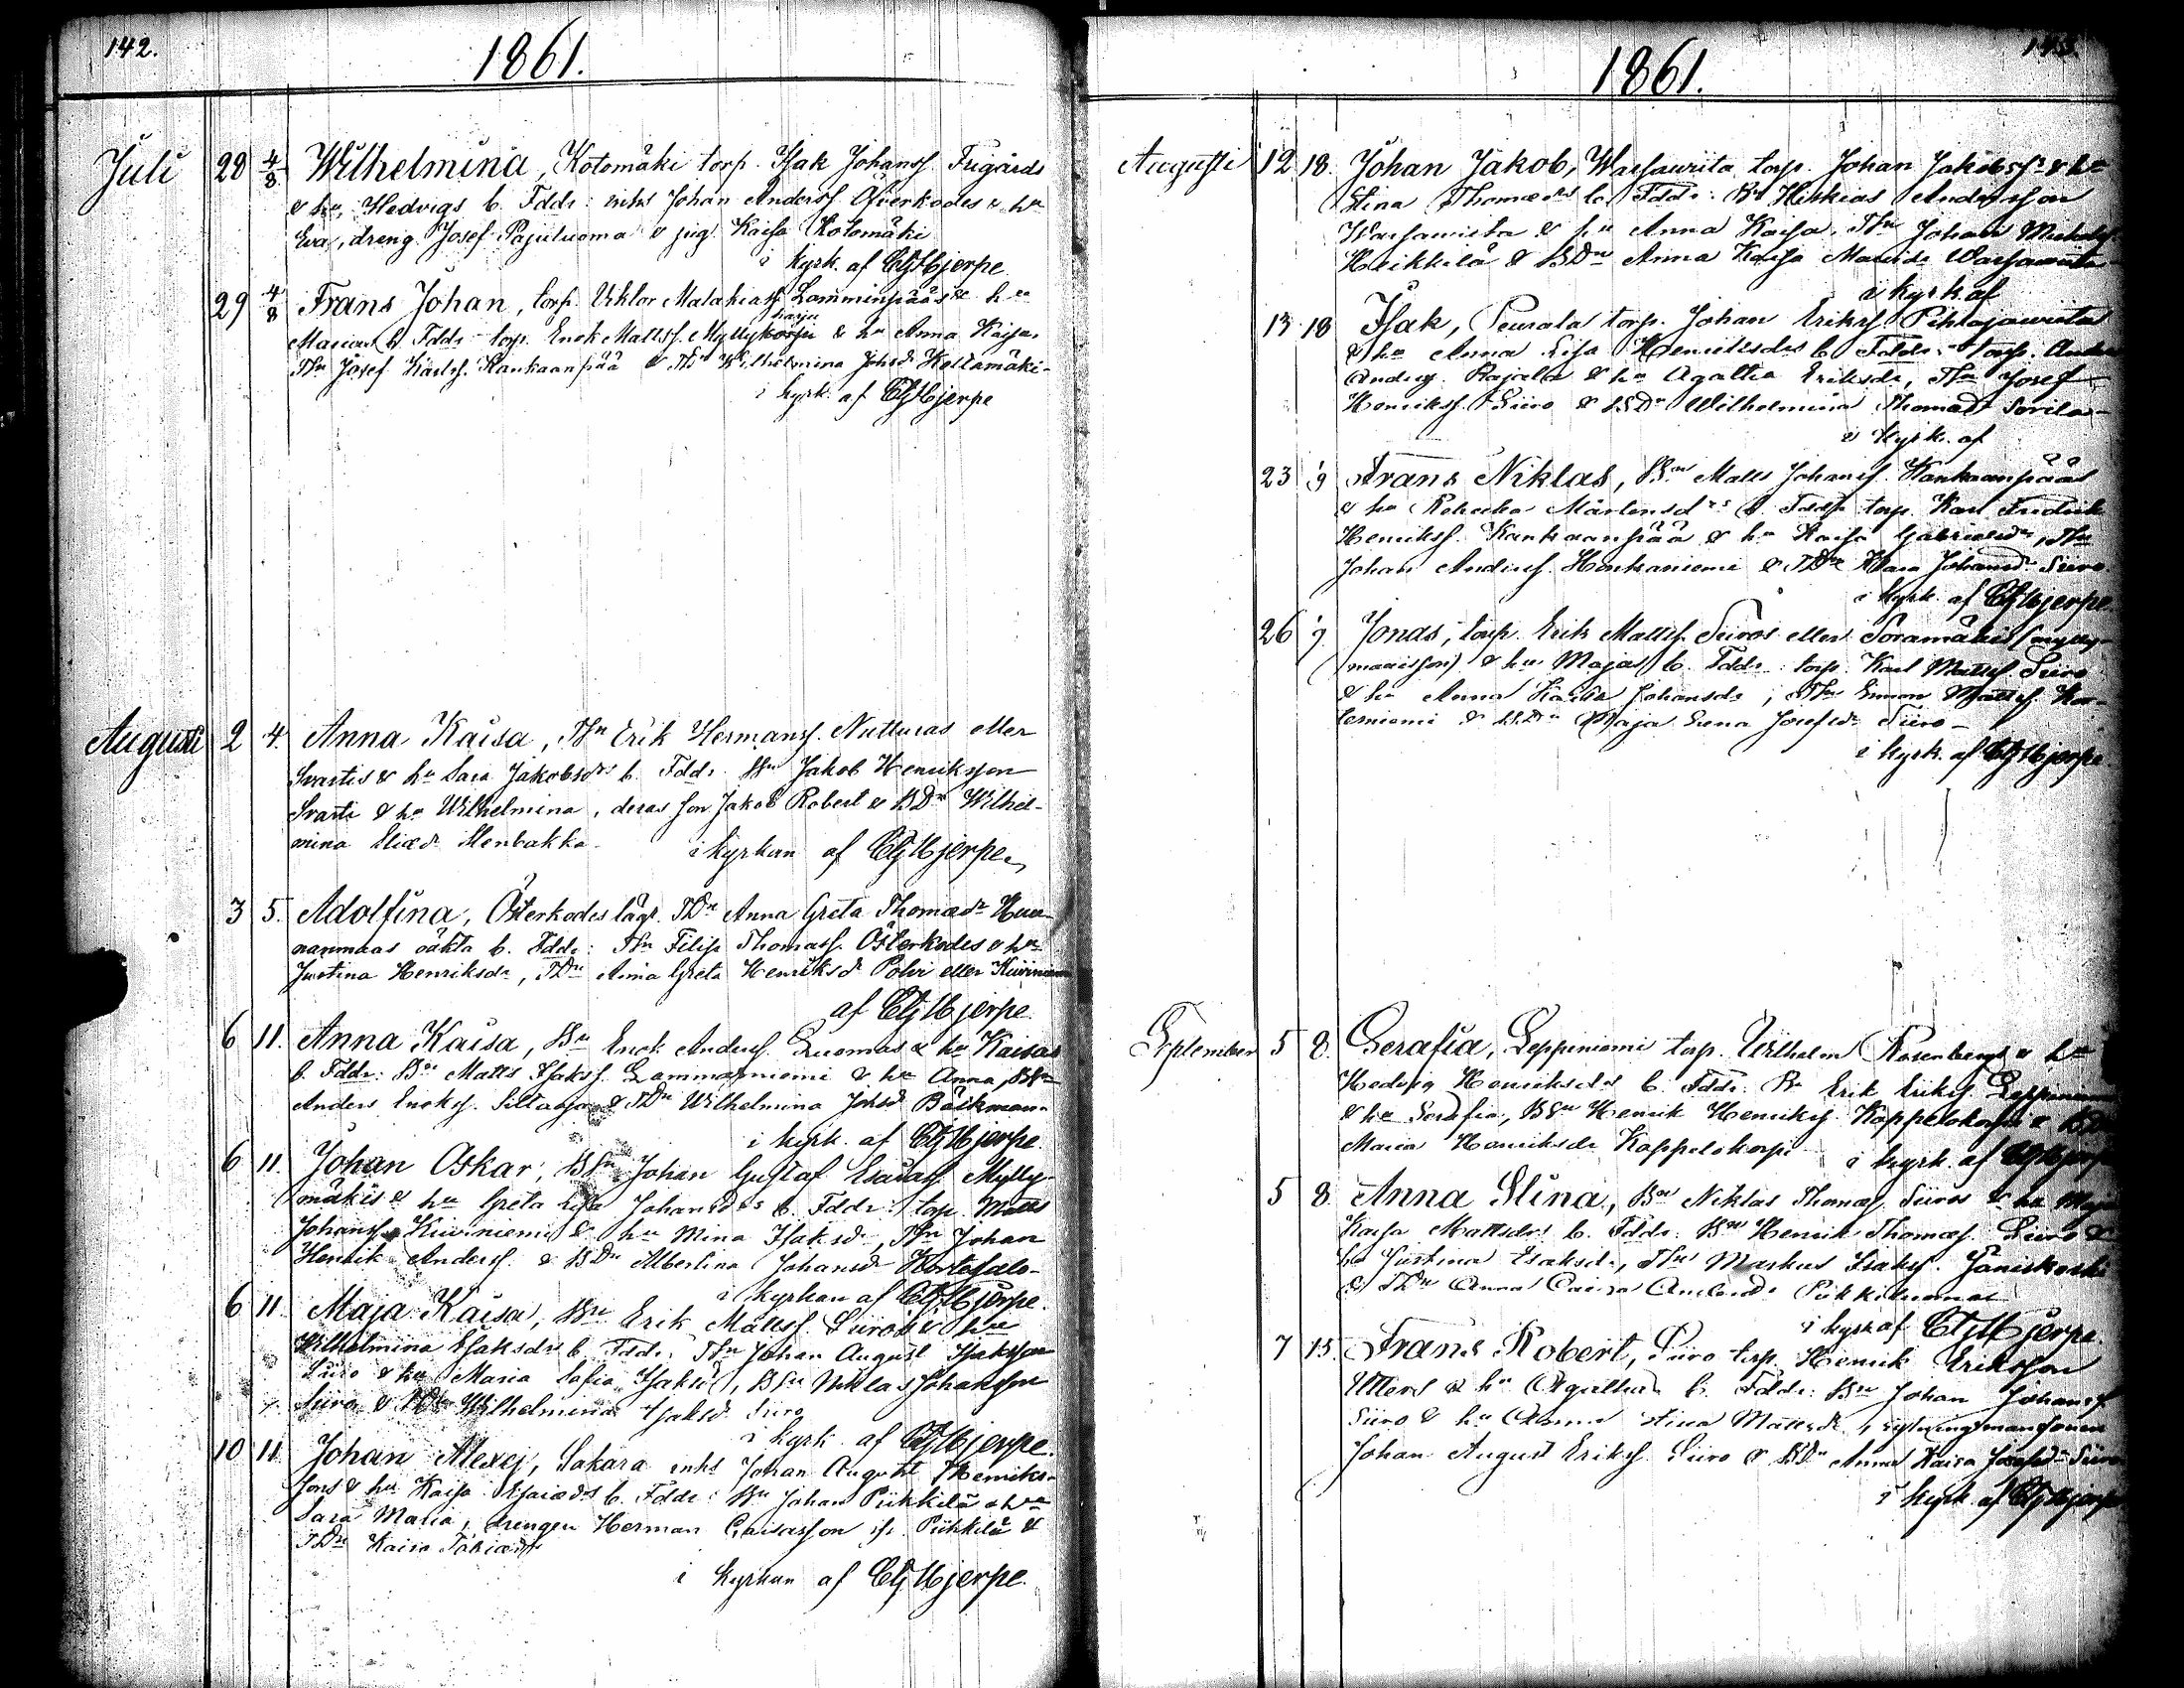 142.
1861.
Juli 28 4/8 Wilhelmina, Kotomäki torp. Isak Johanss. Frigårds
& hu, Hedvigs b. Fddr: inhs Johan Anderss. Öfverkodes & hu
Eva, dreng. Josef Pajuluoma & pig. Kaisa Kotomäki
i kyrk. af CGHjerpe
29 4/8 Frans Johan, torp. Viktor Malakiass. Lamminpääs & hu
Marias b. Fddr torp. Enok Mattss. Myllykorju harju & hu Anna Kaisa,
TSn Josef Karlss. Kankaanpää & TDr Wilhelmina Johsdr Kottamäki
i kyrk. af CGHjerpe
Augusti 2 4. Anna Kaisa, TSn Erik Hermanss. Nutturas eller
Svartis & hu Sara Jakobsdrs b. Fddr Bn Jakob Henriksson
Svarti & hu Wilhelmina, deras son Jakob Robert & BDr Wilhel-
mina Eliædr Stenbakka
i kyrkan af CGHjerpe
3 5. Adolfina, Österkodes lägr. TDr Anna Greta Thomædr
nanmaas oäkta b. Fddr: TSn Filip Thomass. Österkodes & hu
Justina Henriksdr, TDr Anna Greta Henriksdr Polvi eller Kiviniemi
af CGHjerpe
6 11. Anna Kaisa, Bn Enok Anderss. Luomas & hu Kaisas
b. Fddr: Bn Matts Isakss. Lammasniemi & hu Anna, BSn
Anders Enokss. Siltaoja & TDr Wilhelmina Johsdr Bäckman
i kyrk. af CGHjerpe
6 11. Johan Oskar, BSn Johan Gustaf Esaiass. Mylly-
mäkis & hu Greta Lisa Johansdrs b. Fddr: torp. Matts
Johanss. Kiviniemi & hu Mina Isaksdr, TSn Johan
Henrik Anderss. & BDr Albertina Johansdr Kortesalo
i kyrkan af CGHjerpe.
6 11. Maja Kaisa, Bn Erik Mattss. Siiros & hu
Wilhelmina Isaksdrs b. Fddr. TSn Johan August Isaksson
Siiro & hu Maria Sofia Isaksd, BSn Niklas Johansson
Siiro & TDr Wilhelmina Isaksd. Siiro
i kyrk. af CGHjerpe.
10 11. Johan Alexej, Sakara inhs Johan August Henriks-
sons & hu Kaisa Esaiædrs b. Fddr: Bn Johan Piikkilä & hu
Sara Maria, drengen Herman Caisasson Piikkilä &
TDr Kaisa Tobiædr
i kyrkan af CGHjerpe.
1861.
Augusti 12 18. Johan Jakob, Warsawiita torp. Johan Jakobss. & hu
Stina Thomædrs b. Fddr: Bn Hiskias Andersson
Warsawiita & hu Anna Kaisa, TSn Johan
Heikkilä & BDr Anna Kaisa Warsawiita
i kyrk. af
13 18 Isak, Peurala torp. Johan Erikss. Pihlajawiita
& hu Anna Lisa Henriksdrs b. Fddr: torp. Anders
Anderss. Rajala & hu Agatha Eriksdr, TSn Josef
Henrikss. Siiro & BDr Wilhelmina Thomædr Sorila
i kyrk. af
23 1/9 Frans Niklas, Bn Matts Johanss. Kankaanpääs
& hu Rebecka Mårtensdrs b. Fddr torp. Karl Fredrik
Henrikss. Kankaanpää & hu Kaisa Gabrielsdr, TSn
Johan Anderss. Honkaniemi & TDr Klara Johansdr Siiro
i kyrk. af CGHjerpe
26 1/9 Jonas, torp. Erik Mattss. Siiros eller Soramäkis
& hu Majas b. Fddr torp. Karl Mattss Siiro
& hu Anna Kaisa Johansdr, TSn Simon Mattss. Kor-
tesniemi & BDr Maja Lena Josefsdr Siiro
i kyrk. af CGHjerpe
September 5 8. Serafia, Leppiniemi torp. Wilhelm Rosenbergs & hu
Hedvig Henriksdrs b. Fddr. Bn Erik Erikss. Leppiniemi
& hu Serafia, BSn Henrik Henrikss. Kappelokorpi & BDr
Maria Henriksdr Kappelokorpi
i kyrk. af CGHjerpe
5 8. Anna Stina, Bn Niklas Thomæss. Siiros & hu Maja
Kaisa Mattsdrs b. Fddr: Bn Henrik Thomæss. Siiro &
hu Justina Esaksdr, TSn Markus Isakss. Jäniskoski
& TDr Anna Caisa Piikkiluoma
i kyrk af CGHjerpe.
7 15. Frans Robert, Siiro torp Henrik Eriksson
Utters & hu Agathas b. Fddr: Bn Johan Johanss.
Siiro & hu Anna Stina Mattsdr, sytningmansonen
Johan August Erikss. Siiro & BDr Anna Kaisa Josefsdr Siiro
i kyrk. af CGHjerpe